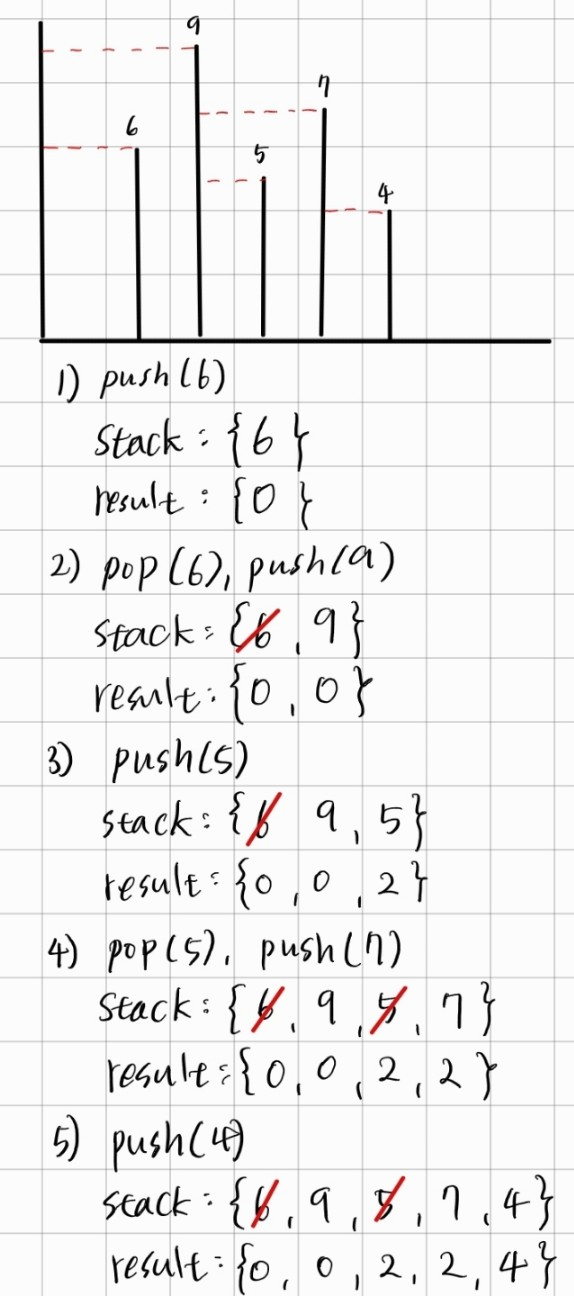 9
7
6
5
4
1) push(6)
stack : {6}
result : {0}
2) pop(6), push(9)
stack : {6, 9}
result : {0, 0}
3) push(5)
stack : {6 9, 5}
result : {0, 0, 2}
4) pop(5), push(7)
stack : {6, 9, 5, 7}
result : {0, 0, 2, 2}
5) push(4)
stack : {6, 9, 5, 7, 4}
result : {0, 0, 2, 2, 4}